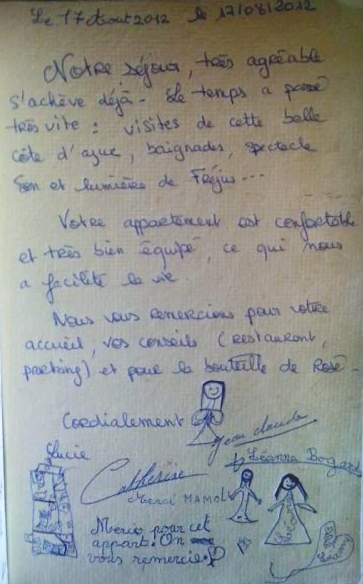 Le 17 Aout 2012 le 17/08/2012
Notre séjour, très agréable
s'achève déjà - Le temps a passé
très vite : visites de cette belle
côte d'azur, baignades, spectacle
Son et lumière de Fréjus...
Votre appartement est confortable
et très bien équipé, ce qui nous
a facilité la vie.
Nous vous remercions pour votre
accueil, vos conseils (restaurant,
parking) et pour la bouteille de Rosé -
Cordialement
Jean claude
Lucie
Catherine
Léanna
Merci
Merci pour cet
appart! On
vous remercie